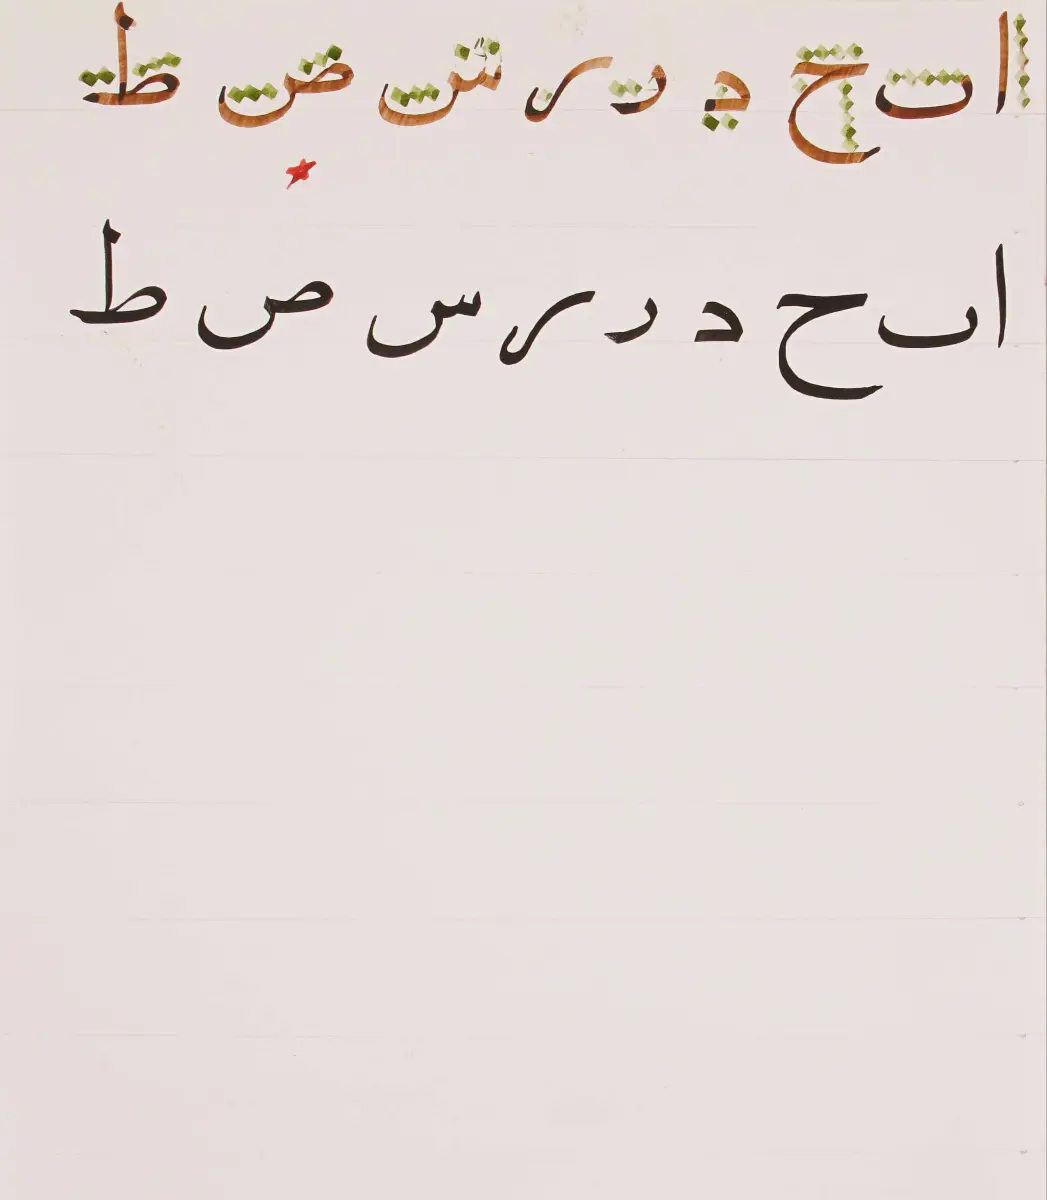 ا ٮ ح د ر ر س ص ط
ا ٮ ح د ر ر س ص ط